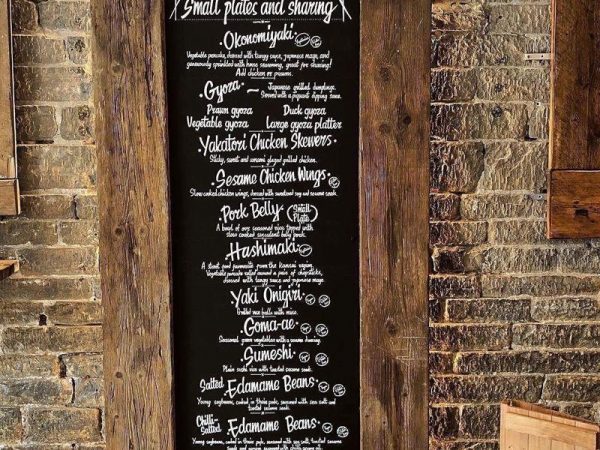 Small plates and sharing
Okonomiyaki
Vegetable pancake, dressed with tangy sauce, japanese mayo, and
generously sprinkled with house seasoning, great for sharing!
Add chicken or prawns.
Gyoza - Japanese grilled dumplings.
Served with a piquant dipping sauce.
Prawn gyoza Duck gyoza
Vegetable gyoza Large gyoza platter
Yakatori Chicken Skewers
Sticky, sweet and sesame glazed grilled chicken.
Sesame Chicken Wings
Slow cooked chicken wings, dressed with sweetened soy and sesame seeds.
Pork Belly (Small Plate)
A bowl of our seasoned rice topped with
slow cooked succulent belly pork.
Hashimaki
A street food favourite from the Kansai region.
Vegetable pancake rolled around a pair of chopsticks,
dressed with tangy sauce and japanese mayo.
Yaki Onigiri
Grilled rice balls with miso.
Goma-ae
Seasoned green vegetables with a sesame dressing.
Sumeshi
Plain sushi rice with toasted sesame seeds.
Salted Edamame Beans
Young soybeans, cooked in their pods, seasoned with sea salt and
toasted sesame seeds.
Chilli Salted Edamame Beans
Young soybeans, cooked in their pods, seasoned with sea salt, toasted
sesame seeds and